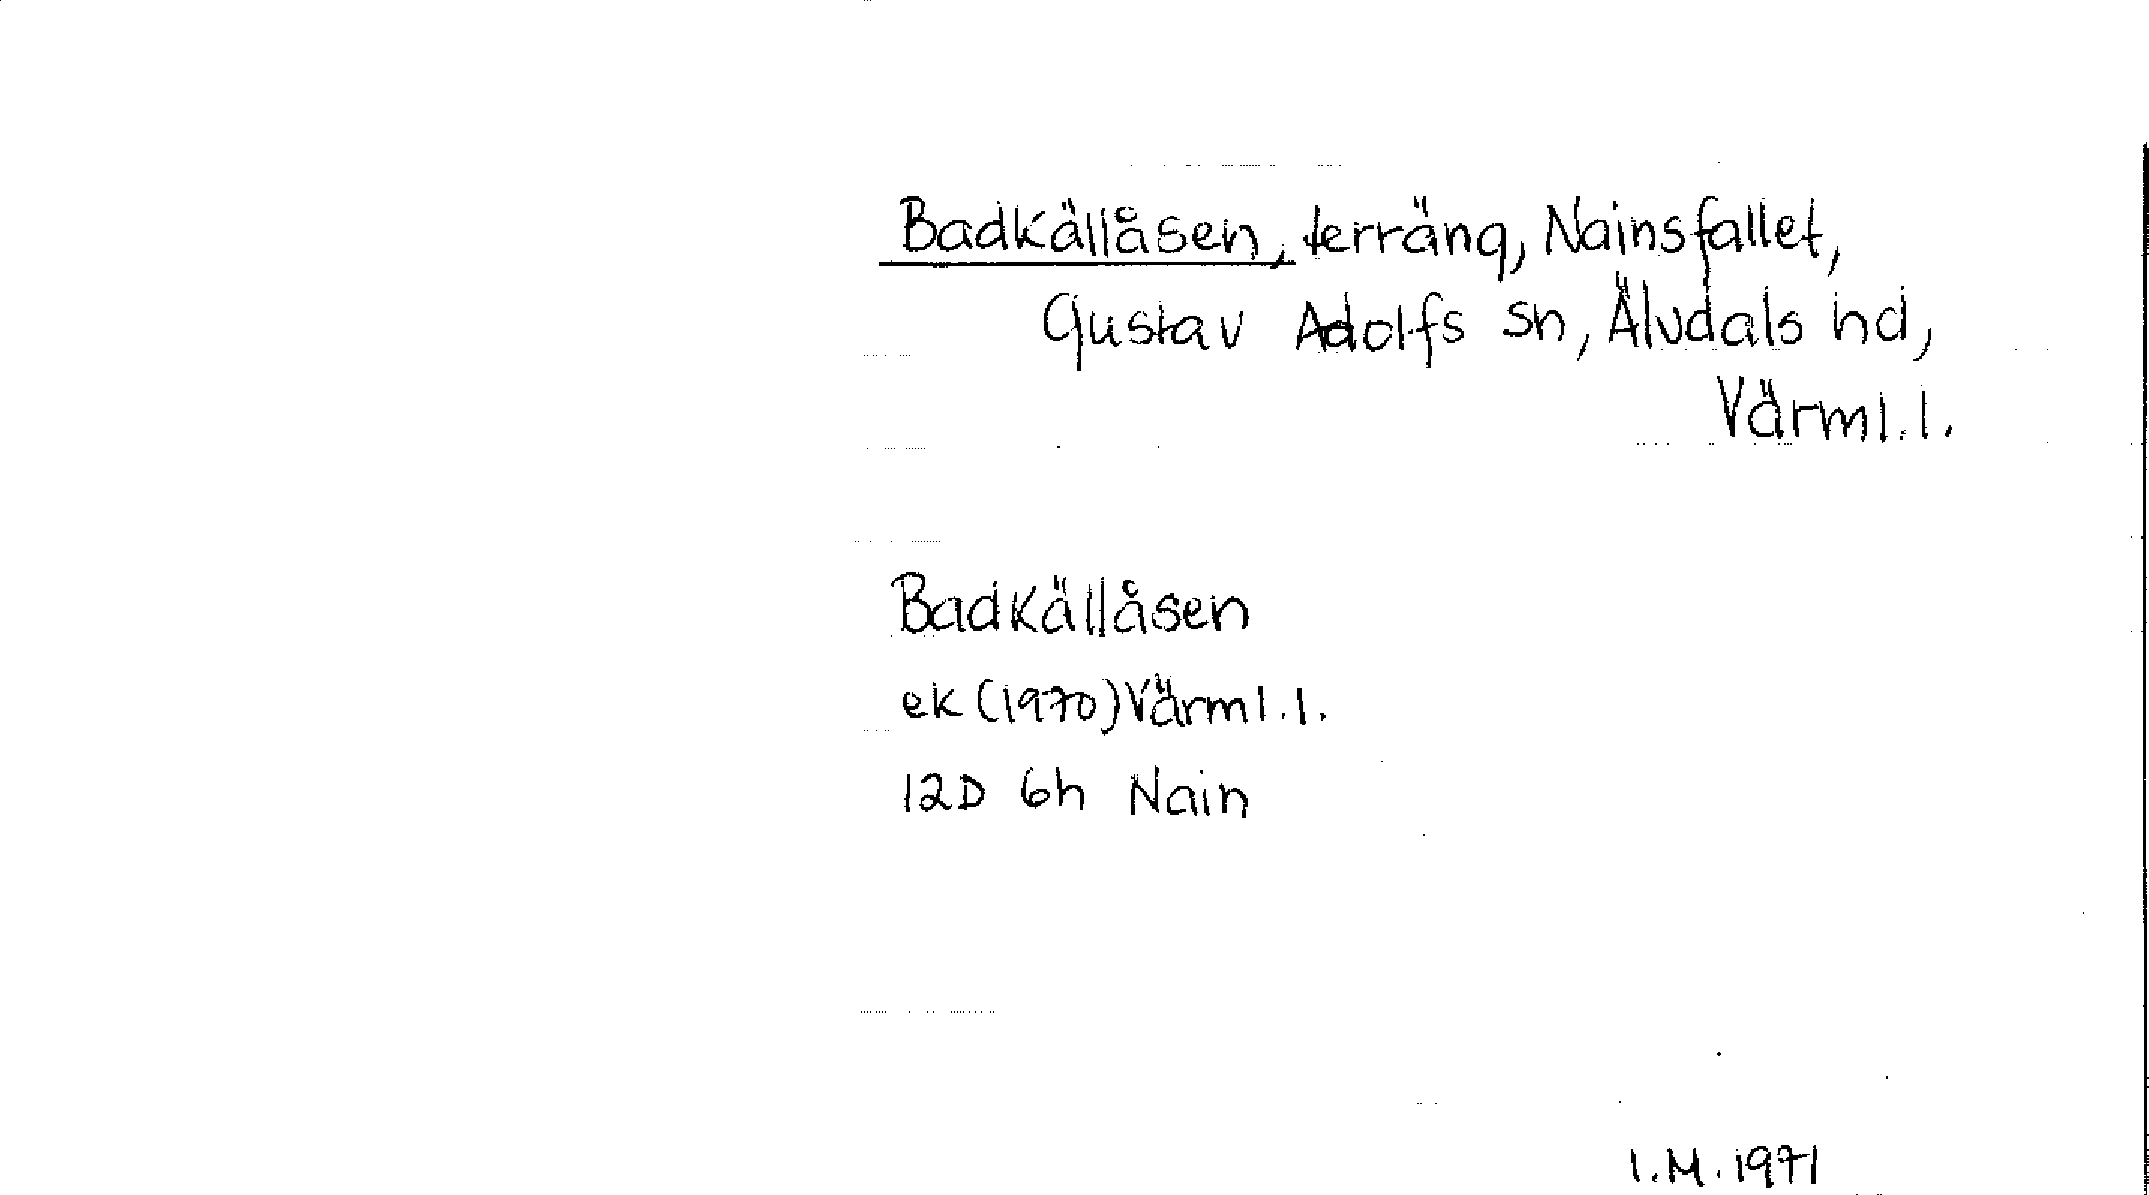 Badkällåsen, terräng, Nainsfallet,
Gustav Adolfs sn, Älvdals hd,
Värml.l.
Badkällåsen
ek (1970) Värml.l.
12D 6h Nain
I.M. 1971